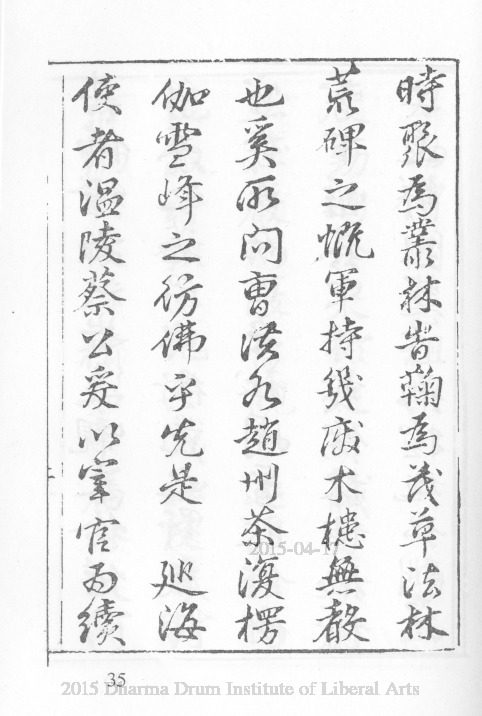 時眾為叢林昔鞠為茂草法林
荒碑之慨軍持幾廢木槵無聲
也奚所問曹溪水趙州茶復楞
伽雪峰之彷彿乎先是 巡海
使者溫陵蔡公爰以宰官而續
35
2015-04-17
2015 Dharma Drum Institute of Liberal Arts